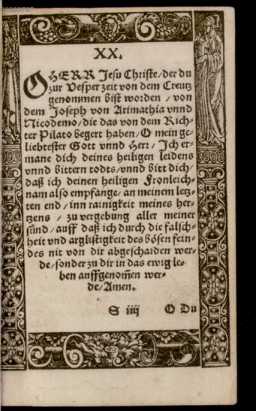 XX.
O HERR Jesu Christe/der du
zur Vesper zeit von dem Creutz
genommen bist worden / von
dem Joseph von Arimathia vnnd
Nicodemo/die das von dem Rich-
ter Pilato begert haben/O mein ge-
liebtester Gott vnnd Herr/Ich er-
mane dich deines heiligen leidens
vnnd bittern todts/vnnd bitt dich/
daß ich deinen heiligen Fronleich-
nam also empfange/an meinem letz-
ten end/inn rainigkeit meines her-
tzens / zu vergebung aller meiner
sünd/auff daß ich durch die falsch-
heit vnd arglistigkeit des bösen fein-
des nit von dir abgeschaiden wer-
de/sonder zu dir in das ewig le-
ben auffgenommen wer-
de/Amen.
S iiij O Du